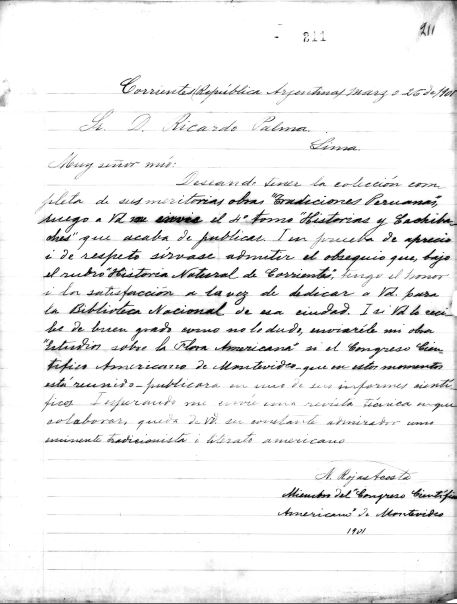 211
211
Corrientes (República Argentina) Marzo 25 de 1901
Sr. D. Ricardo Palma.
Lima.
Muy señor mío:
Deseando tener la colección com
pleta de sus meritorias obras "Tradiciones Peruanas",
ruego a Vd. me envíe el 4º tomo "Historias y Cachiba
ches" que acaba de publicar. I en prueba de aprecio
i de respeto sírvase admitir el obsequio que, bajo
el rubro "Historia Natural de Corrientes", tengo el honor
i la satisfacción a la vez de dedicar a Vd. para
la Biblioteca Nacional de esa ciudad. I si Vd. lo reci
be de buen grado como no lo dudo, enviaréle mi obra
"Estudios sobre la Flora Americana" si el Congreso Cien
tífico Americano de Montevideo - que en estos momentos
está reunido - publicara en uno de sus informes cientí
ficos. I esperando me envíe una revista técnica en que
colaborar, queda de Vd. su constante admirador como
eminente tradicionista i literato americano
N. Rojas Acosta
Miembro del "Congreso Científico
Americano" de Montevideo
1901